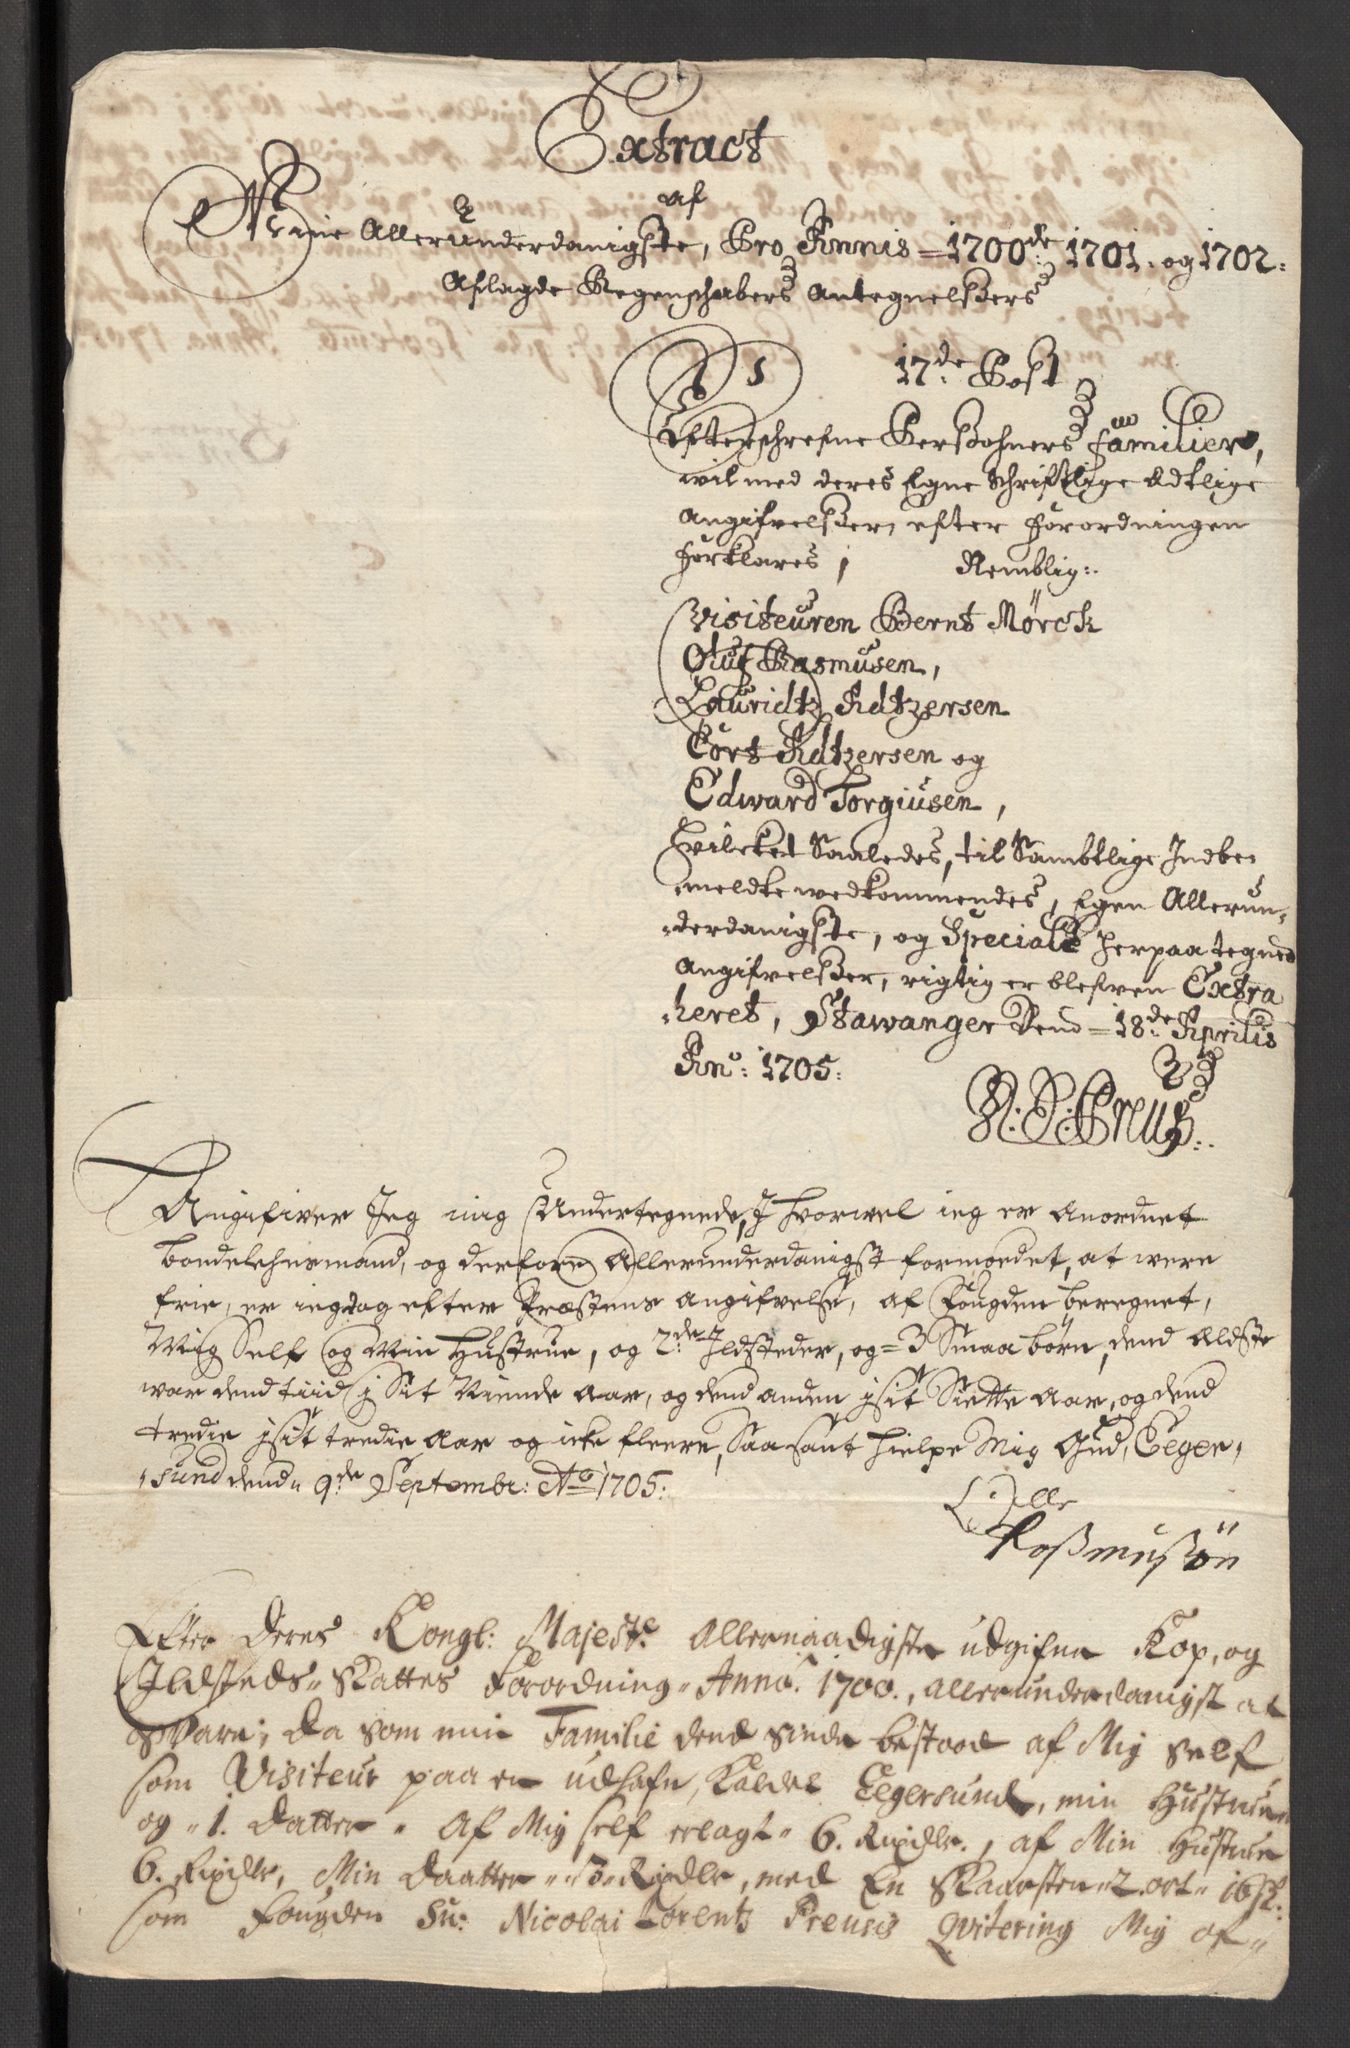 Extract
af
Mine Allerunderdanigste, Pro Annis = 1700de 1701. og 1702:
Aflagde Regenschabers Antegnelßers
17de Post
Efterschrefne Perßohners familier,
wil med deres Egne Schriftlige Edtlige
Angifvelßer, efter Forordningen
forklares, Nemblig:
Visiteuren Bernt Mörch
Oluf Rasmusen,
Lauridtz Adtzersen
Cort Adtzersen og
Edward Torgiusen,
Hvilcket Saaledes, til Sambtlige Indbe-
meldte wedkommendes, Egen Allerun-
derdanigste, og Speciale herpaategned
Angifvelßer, rigtig er blefven Extra
heret, Stawanger Dend = 18de Aprilis
Ano: 1705:
N: L: Preus:
Angifwer Jeg mig Undertegnede, J hvorwel ieg er Anordnet
bondelehnsmand, og derfore Allerunderdanigst formoedet, at were
frie, er ieg dog efter Præstens angifvelse, af Fougden beregnet,
Mig Self og Min Hustrue, og 2de Jldsteder, og = 3 Smaa børn, dend Eldste
war dend tiid j Sit Niende Aar, og dend anden j sit Siette Aar, og dend
tredie j sit tredie Aar og icke fleere, Saa sant hielpe Mig Gud, Eeger-
sund dend 9de Septembr: Ao 1705:
Olle
Rosmusøn
Efter Deres Kongl: Majests Allernaadigste udgifne Kop, og
Jldsteds Skattes Forordning Anno. 1700., allerunderdanigst at
Svare; Da som min Familie dend sinde bestood af Mig self
som Visiteur paa en udhafn, Kaldet Eegersund, min Hustrue
og 1. Datter Af Mig self erlagt 6. Rixdlr., af Min Hustrue
6. Rixdlr, Min Daatter 3 Rixdlr, med En Skaarsten 2. ort 16 s:
som Fougden Sr: Nicolai Lorentz Preusis Qvitering Mig af-